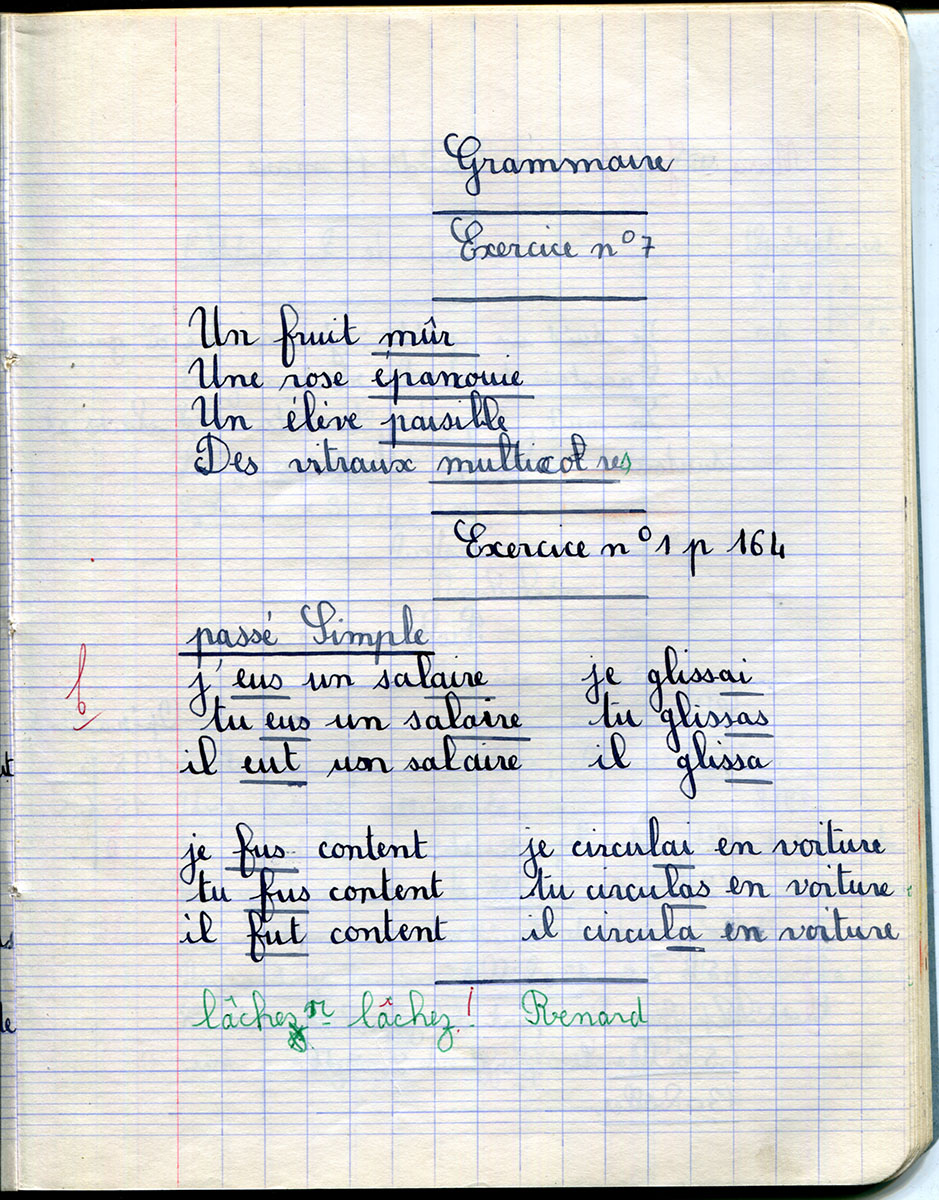 Grammaire
Exercice n° 7
Un fruit mûr
Une rose épanouie
Un élève paisible
Des vitraux multicolres
Exercice n° 1 p 164
passé Simple
j'eus un salaire je glissai
tu eus un salaire tu glissas
il eut un salaire il glissa
je fus content je circulai en voiture
tu fus content tu circulas en voiture
il fut content il circula en voiture
lâchez lâchez! Renard